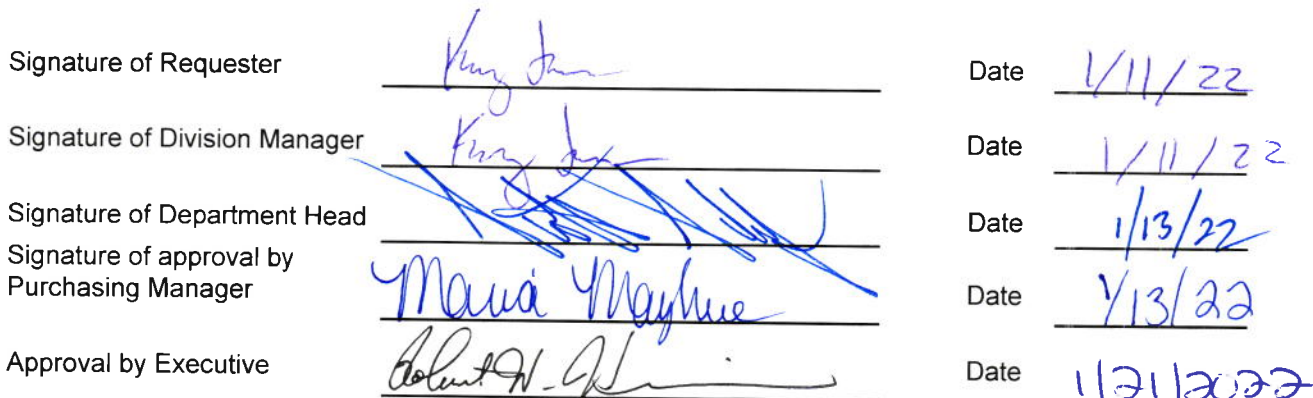 Signature of Requester Date 1/11/22
Signature of Division Manager Date 1/11/22
Signature of Department Head Date 1/13/22
Signature of approval by
Purchasing Manager Maria Mayhue Date 1/13/22
Approval by Executive Robert H. Date 1/21/2022